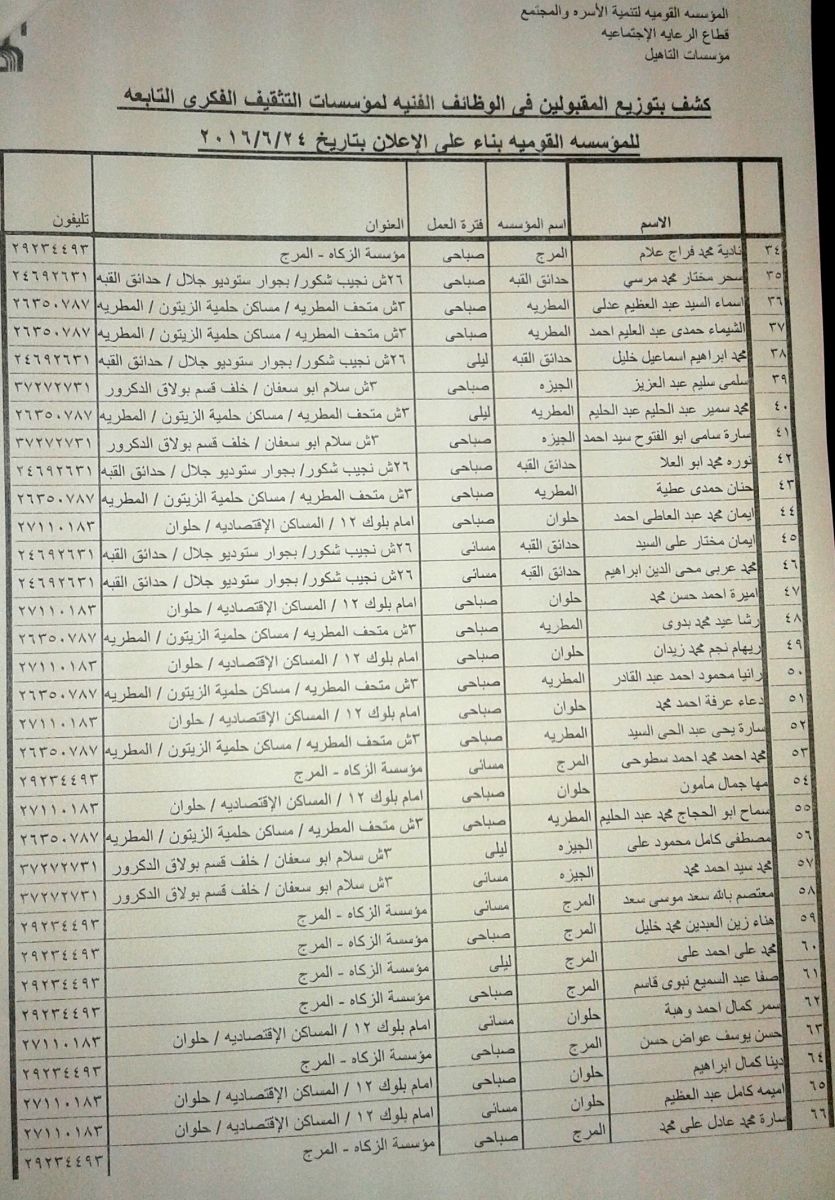 المؤسسه القوميه لتنمية الأسره والمجتمع
قطاع الرعايه الإجتماعيه
مؤسسات التاهيل
كشف بتوزيع المقبولين فى الوظائف الفنيه لمؤسسات التثقيف الفكرى التابعه
للمؤسسه القوميه بناء على الإعلان بتاريخ ٢٠١٦/٦/٢٤
الاسم اسم المؤسسه فترة العمل العنوان تليفون
٣٤ نادية محمد فراج علام المرج صباحى مؤسسة الزكاه - المرج ٢٩٢٣٤٤٩٣
٣٥ سحر مختار محمد مرسي حدائق القبه صباحى ٢٦ش نجيب شكور/ بجوار ستوديو جلال / حدائق القبه ٢٤٦٩٢٦٣١
٣٦ اسماء السيد عبد العظيم عدلى المطريه صباحى ٣ش متحف المطريه / مساكن حلمية الزيتون / المطريه ٢٦٣٥٠٧٨٧
٣٧ الشيماء حمدى عبد العليم احمد المطريه صباحى ٣ش متحف المطريه / مساكن حلمية الزيتون / المطريه ٢٦٣٥٠٧٨٧
٣٨ محمد ابراهيم اسماعيل خليل حدائق القبه ليلى ٢٦ش نجيب شكور/ بجوار ستوديو جلال / حدائق القبه ٢٤٦٩٢٦٣١
٣٩ سلمى سليم عبد العزيز الجيزه صباحى ٣ش سلام ابو سعفان / خلف قسم بولاق الدكرور ٣٧٢٧٢٧٣١
٤٠ محمد سمير عبد الحليم عبد الحليم المطريه ليلى ٣ش متحف المطريه / مساكن حلمية الزيتون / المطريه ٢٦٣٥٠٧٨٧
٤١ سارة سامى ابو الفتوح سيد احمد الجيزه صباحى ٣ش سلام ابو سعفان / خلف قسم بولاق الدكرور ٣٧٢٧٢٧٣١
٤٢ نوره محمد ابو العلا حدائق القبه صباحى ٢٦ش نجيب شكور/ بجوار ستوديو جلال / حدائق القبه ٢٤٦٩٢٦٣١
٤٣ حنان حمدى عطية المطريه صباحى ٣ش متحف المطريه / مساكن حلمية الزيتون / المطريه ٢٦٣٥٠٧٨٧
٤٤ ايمان محمد عبد العاطى احمد حلوان صباحى امام بلوك ١٢ / المساكن الإقتصاديه / حلوان ٢٧١١٠١٨٣
٤٥ ايمان مختار على السيد حدائق القبه مسائى ٢٦ش نجيب شكور/ بجوار ستوديو جلال / حدائق القبه ٢٤٦٩٢٦٣١
٤٦ محمد عربى محى الدين ابراهيم حدائق القبه مسائى ٢٦ش نجيب شكور/ بجوار ستوديو جلال / حدائق القبه ٢٤٦٩٢٦٣١
٤٧ اميرة احمد حسن محمد حلوان صباحى امام بلوك ١٢ / المساكن الإقتصاديه / حلوان ٢٧١١٠١٨٣
٤٨ رشا عيد محمد بدوى المطريه صباحى ٣ش متحف المطريه / مساكن حلمية الزيتون / المطريه ٢٦٣٥٠٧٨٧
٤٩ ريهام نجم محمد زيدان حلوان صباحى امام بلوك ١٢ / المساكن الإقتصاديه / حلوان ٢٧١١٠١٨٣
٥٠ رانيا محمود احمد عبد القادر المطريه صباحى ٣ش متحف المطريه / مساكن حلمية الزيتون / المطريه ٢٦٣٥٠٧٨٧
٥١ دعاء عرفة احمد محمد حلوان صباحى امام بلوك ١٢ / المساكن الإقتصاديه / حلوان ٢٧١١٠١٨٣
٥٢ سارة يحى عبد الحى السيد المطريه صباحى ٣ش متحف المطريه / مساكن حلمية الزيتون / المطريه ٢٦٣٥٠٧٨٧
٥٣ محمد احمد محمد احمد سطوحى المرج مسائى مؤسسة الزكاه - المرج ٢٩٢٣٤٤٩٣
٥٤ مها جمال مأمون حلوان صباحى امام بلوك ١٢ / المساكن الإقتصاديه / حلوان ٢٧١١٠١٨٣
٥٥ سماح ابو الحجاج محمد عبد الحليم المطريه صباحى ٣ش متحف المطريه / مساكن حلمية الزيتون / المطريه ٢٦٣٥٠٧٨٧
٥٦ مصطفى كامل محمود على الجيزه ليلى ٣ش سلام ابو سعفان / خلف قسم بولاق الدكرور ٣٧٢٧٢٧٣١
٥٧ محمد سيد احمد محمد الجيزه مسائى ٣ش سلام ابو سعفان / خلف قسم بولاق الدكرور ٣٧٢٧٢٧٣١
٥٨ معتصم بالله سعد موسى سعد المرج مسائى مؤسسة الزكاه - المرج ٢٩٢٣٤٤٩٣
٥٩ هناء زين العبدين محمد خليل المرج صباحى مؤسسة الزكاه - المرج ٢٩٢٣٤٤٩٣
٦٠ محمد على احمد على المرج ليلى مؤسسة الزكاه - المرج ٢٩٢٣٤٤٩٣
٦١ صفا عبد السميع نبوى قاسم المرج صباحى مؤسسة الزكاه - المرج ٢٩٢٣٤٤٩٣
٦٢ سمر كمال احمد وهبة حلوان مسائى امام بلوك ١٢ / المساكن الإقتصاديه / حلوان ٢٧١١٠١٨٣
٦٣ حسن يوسف عواض حسن المرج صباحى مؤسسة الزكاه - المرج ٢٩٢٣٤٤٩٣
٦٤ دينا كمال ابراهيم حلوان صباحى امام بلوك ١٢ / المساكن الإقتصاديه / حلوان ٢٧١١٠١٨٣
٦٥ اميمه كامل عبد العظيم حلوان مسائى امام بلوك ١٢ / المساكن الإقتصاديه / حلوان ٢٧١١٠١٨٣
٦٦ سارة محمد عادل على محمد المرج صباحى مؤسسة الزكاه - المرج ٢٩٢٣٤٤٩٣